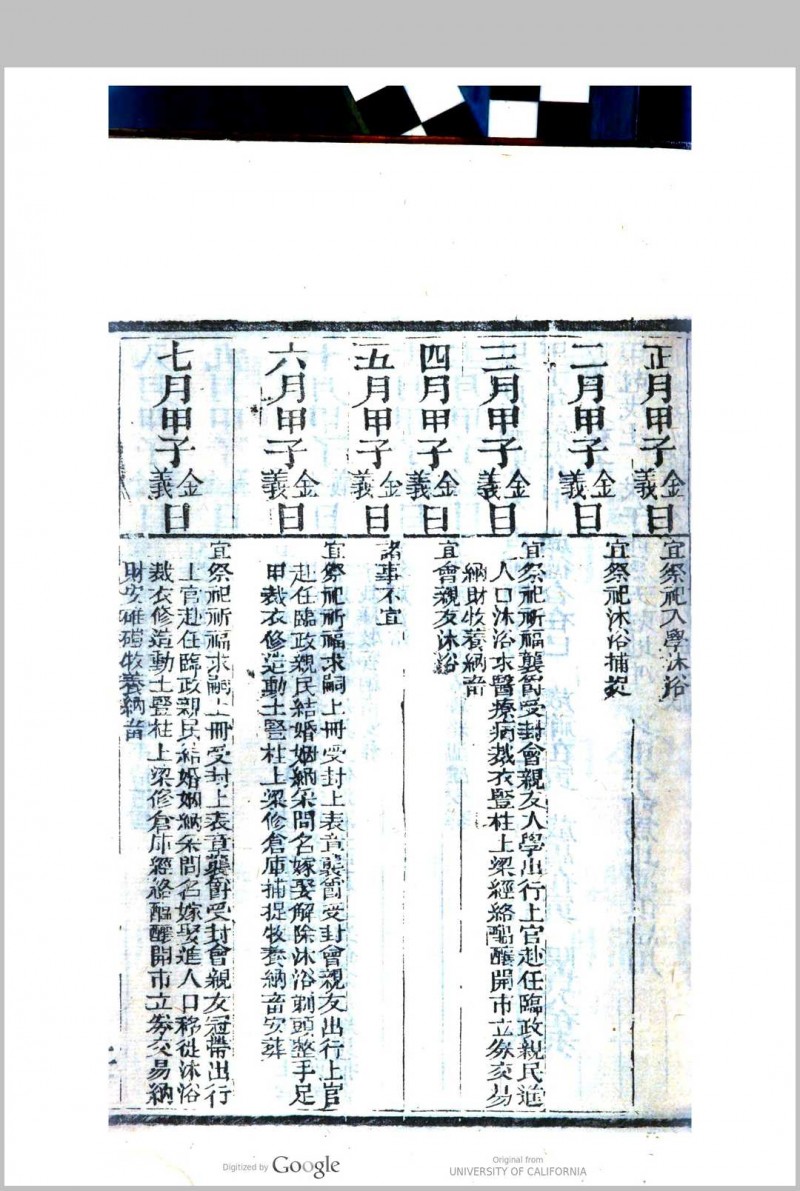 正月甲子金義日
宜祭祀入學沐浴
二月甲子金義日
宜祭祀沐浴捕捉
三月甲子金義日
宜祭祀祈福襲爵受封會親友入學出行上官赴任臨政親民進
人口沐浴求醫療病裁衣豎柱上梁經絡醞釀開市立券交易
納財牧養納畜
四月甲子金義日
宜會親友沐浴
五月甲子金義日
諸事不宜
六月甲子金義日
宜祭祀祈福求嗣上冊受封上表章襲爵受封會親友出行上官
赴任臨政親民結婚姻納采問名嫁娶解除沐浴剃頭整手足
甲裁衣修造動土豎柱上梁修倉庫捕捉牧養納畜安葬
七月甲子金義日
宜祭祀祈福求嗣上冊受封上表章襲爵受封會親友冠帶出行
上官赴任臨政親民結婚姻納采問名嫁娶進人口移徙沐浴
裁衣修造動土豎柱上梁修倉庫經絡醞釀開市立券交易納
財安碓磑牧養納畜
Digitized by Google
Original from
UNIVERSITY OF CALIFORNIA